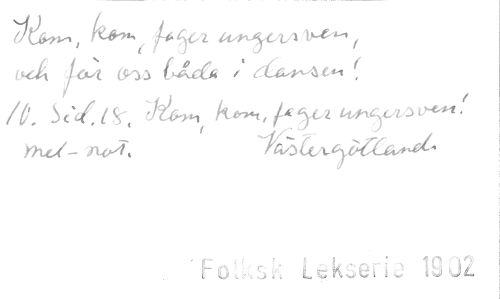 Kom, kom, fager ungersven,
och för oss båda i dansen!
10. Sid. 18. Kom, kom, fager ungersven!
mel-not. Västergötland.
Folksk Lekserie 1902